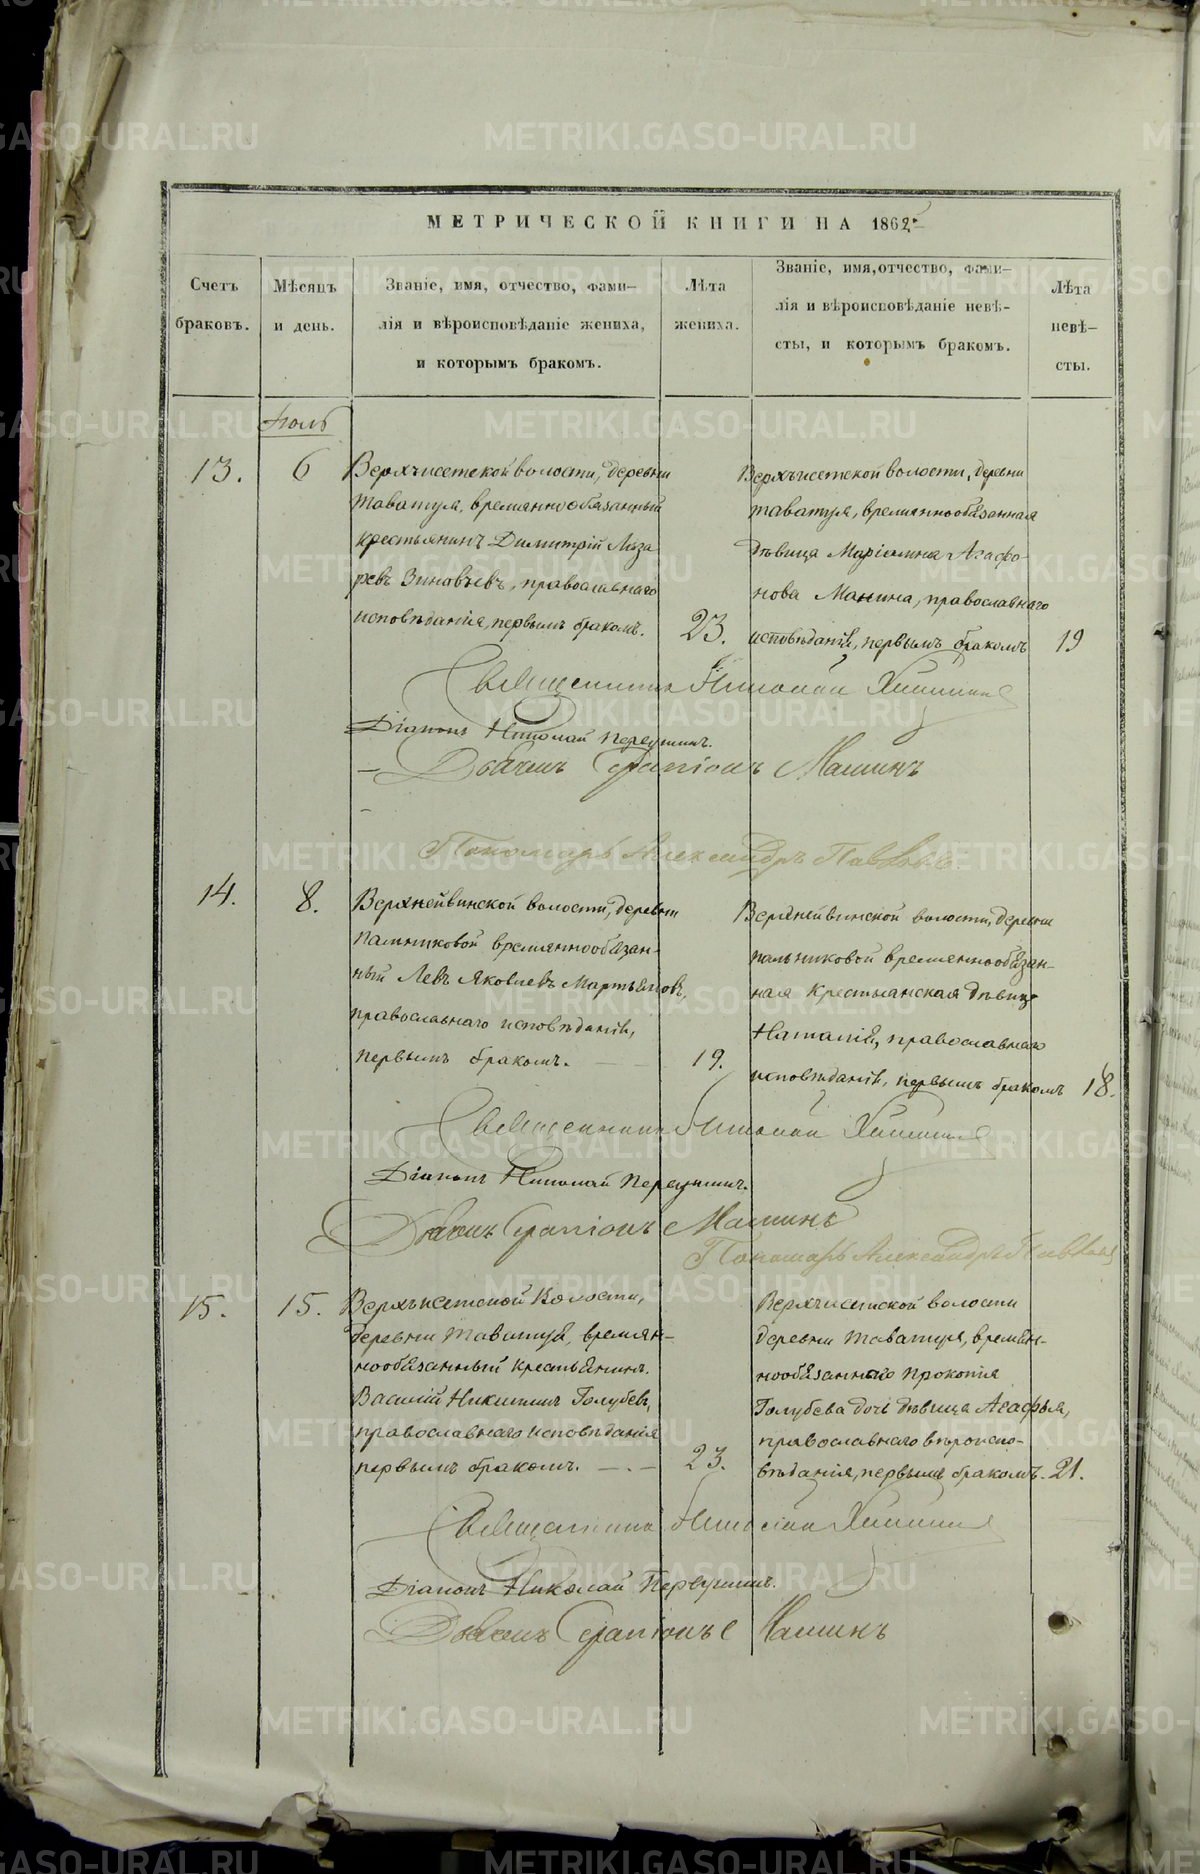 МЕТРИЧЕСКОЙ КНИГИ НА 1862
Счетъ браковъ.
Мѣсяцъ и день.
Званіе, имя, отчество, фами-
лія и вѣроисповѣданіе жениха,
и которымъ бракомъ.
Лѣта жениха.
Званіе, имя, отчество, фами-
лія и вѣроисповѣданіе невѣ-
сты, и которымъ бракомъ.
Лѣта невѣ-
сты.
13.
6
Верхъисетской волости, деревни
Таватуя, временнообязанный
крестьянинъ Димитрій Лаза
ревъ Зиновьевъ, православнаго
исповѣданія, первымъ бракомъ.
23.
Верхъисетской волости, деревни
Таватуя, временнообязанная
дѣвица Маріамна Агафо
нова Манина, православнаго
исповѣданія, первымъ бракомъ
19
Священникъ Николай
Діаконъ Николай Первушинъ.
Дьячекъ Серапіонъ Маминъ
Пономарь Александръ Павловъ
14.
8.
Верхнейвинской волости, деревни
Пальниковой временнообязан-
ный Левъ Яковлевъ Мартьяновъ,
православнаго исповѣданія,
первымъ бракомъ.
19.
Верхнейвинской волости, деревни
Пальниковой временнообязан-
ная крестьянская дѣвица
Наталія, православнаго
исповѣданія, первымъ бракомъ
18.
Священникъ Николай
Діаконъ Николай Первушинъ.
Дьячекъ Серапіонъ Маминъ
Пономарь Александръ Павловъ
15.
15.
Верхъисетской Волости,
деревни Таватуя, времян-
нообязанный крестьянинъ
Василій Никитинъ Голубевъ,
православнаго исповѣданія
первымъ бракомъ.
23.
Верхъисетской волости
деревни Таватуя, времен-
нообязаннаго Прокопія
Голубева дочь дѣвица Агафья,
православнаго вѣроиспо-
вѣданія, первымъ бракомъ.
21.
Священникъ Николай
Діаконъ Николай Первушинъ.
Дьячекъ Серапіонъ Маминъ
METRIKI.GASO-URAL.RU